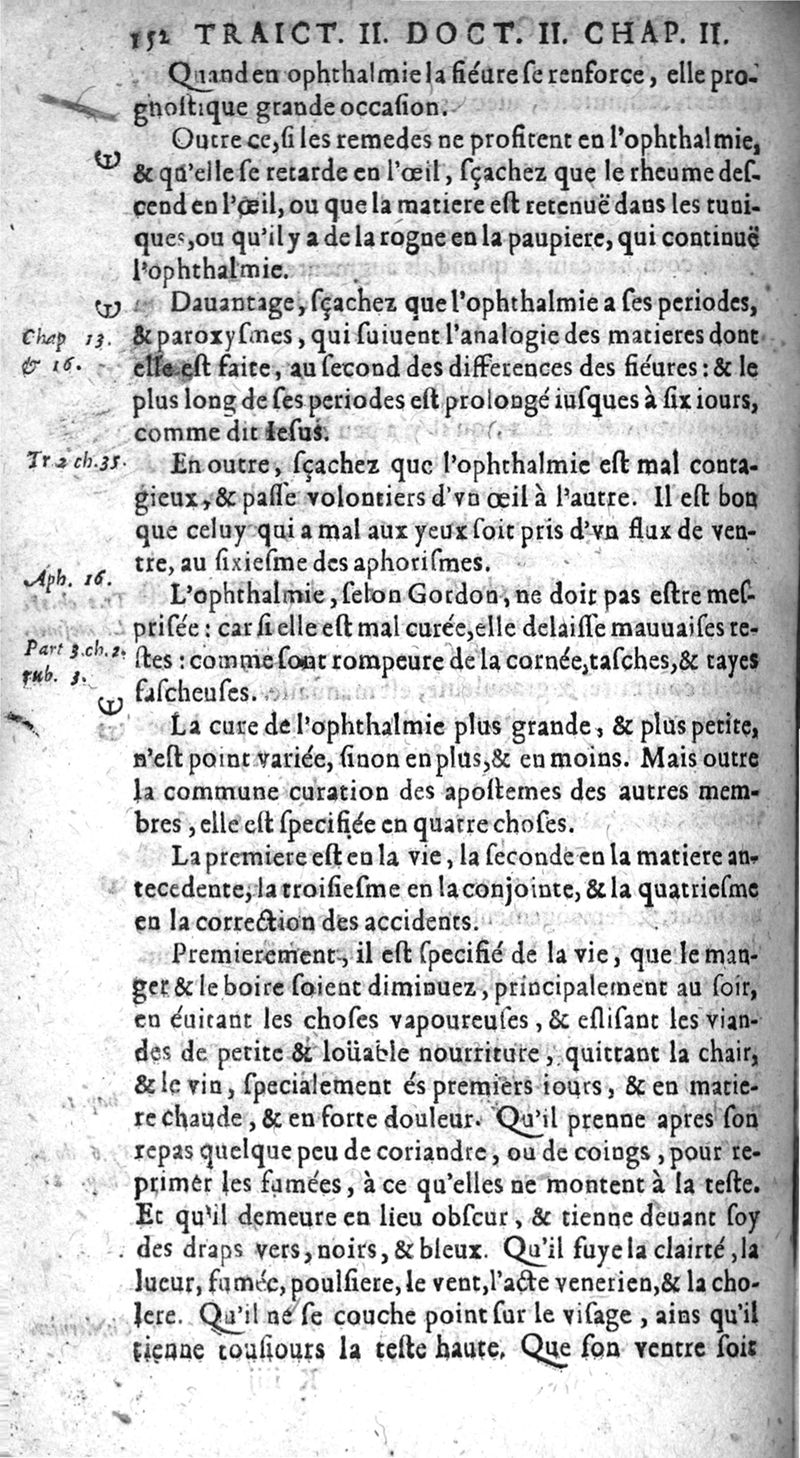 152 TRAICT. II. DOCT. II. CHAP. II.
Quand en ophthalmie la fiéure se renforce, elle pro-
gnostique grande occasion.
Outre ce, si les remedes ne profitent en l'ophthalmie,
& qu'elle se retarde en l'œil, sçachez que le rheume des-
cend en l'œil, ou que la matiere est retenuë dans les tuni-
ques, ou qu'il y a de la rogne en la paupiere, qui continuë
l'ophthalmie.
Dauantage, sçachez que l'ophthalmie a ses periodes,
Chap 13.
& paroxysmes, qui suiuent l'analogie des matieres dont
& 16.
elle est faite, au second des differences des fiéures: & le
plus long de ses periodes est prolongé iusques à six iours,
comme dit Iesus.
Tr 2 ch. 35.
En outre, sçachez que l'ophthalmie est mal conta-
gieux, & passe volontiers d'vn œil à l'autre. Il est bon
que celuy qui a mal aux yeux soit pris d'vn flux de ven-
tre, au sixiesme des aphorismes.
Aph. 16.
L'ophthalmie, selon Gordon, ne doit pas estre mes-
prisée: car si elle est mal curée, elle delaisse mauuaises re-
Part 3. ch. 2.
stes: comme sont rompeure de la cornée, tasches, & tayes
rub. 3.
fascheuses.
La cure de l'ophthalmie plus grande, & plus petite,
n'est point variée, sinon en plus, & en moins. Mais outre
la commune curation des apostemes des autres mem-
bres, elle est specifiée en quatre choses.
La premiere est en la vie, la seconde en la matiere an-
tecedente, la troisiesme en la conjointe, & la quatriesme
en la correction des accidents.
Premierement, il est specifié de la vie, que le man-
ger & le boire soient diminuez, principalement au soir,
en éuitant les choses vapoureuses, & eslisant les vian-
des de petite & loüable nourriture, quittant la chair,
& le vin, specialement és premiers iours, & en matie-
re chaude, & en forte douleur. Qu'il prenne apres son
repas quelque peu de coriandre, ou de coings, pour re-
primer les fumées, à ce qu'elles ne montent à la teste.
Et qu'il demeure en lieu obscur, & tienne deuant soy
des draps vers, noirs, & bleux. Qu'il fuye la clairté, la
lueur, fumée, poulsiere, le vent, l'acte venerien, & la cho-
lere. Qu'il ne se couche point sur le visage, ains qu'il
tienne tousiours la teste haute. Que son ventre soit